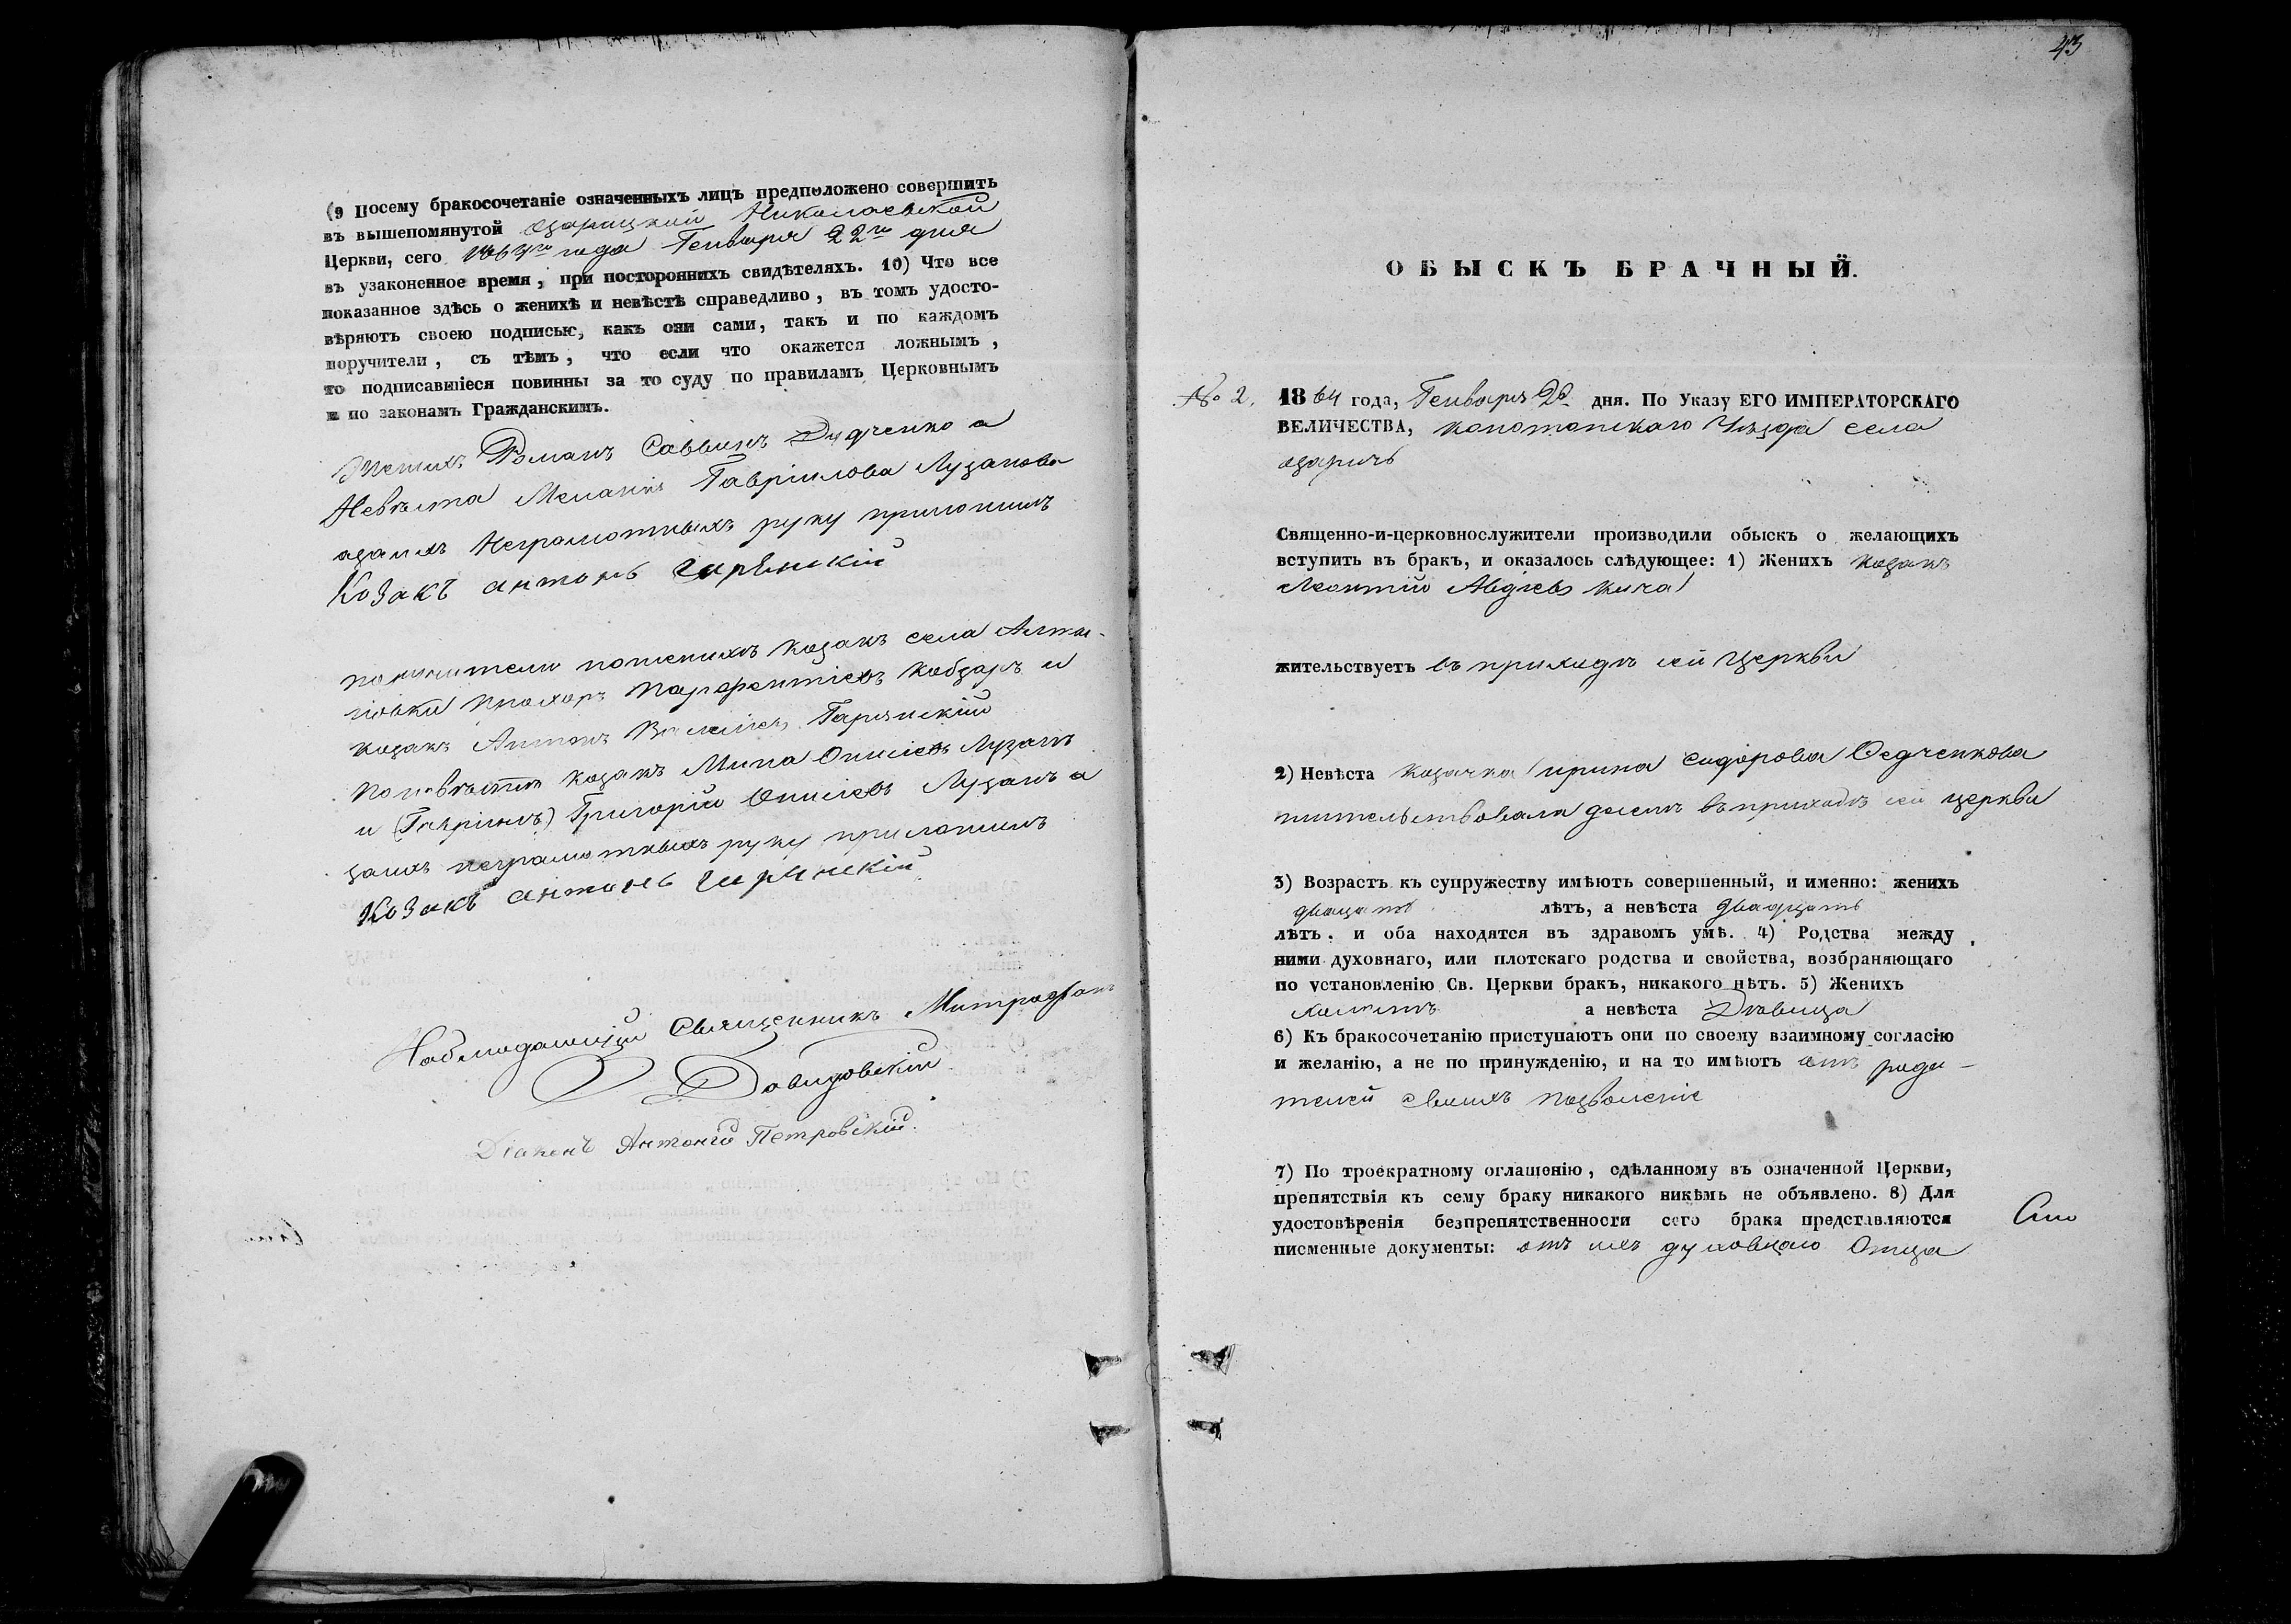 (9 Посему бракосочетаніе означенныхъ лицъ предположено совершить
въ вышепомянутой Озарицкой Николаевской
Церкви, сего 1864го года Генваря 22го дня
въ узаконенное время, при постороннихъ свидѣтеляхъ. 10) Что все
показанное здѣсь о женихѣ и невѣстѣ справедливо, въ томъ удосто-
вѣряютъ своею подписью, какъ они сами, такъ и по каждомъ
поручители, съ тѣмъ, что если что окажется ложнымъ,
то подписавшіеся повинны за то суду по правиламъ Церковнымъ
и по законамъ Гражданскимъ.
Женихъ Романъ Саввинъ Дудченко а
Невѣста Меланія Гавріилова Лузанова
азаихъ Неграмотныхъ руку приложилъ
Козакъ антонъ гирѣнскій
поручители поженихѣ козакъ села Алты-
новки Прохоръ Парфентіевъ Кобзарь и
козакъ Антонъ Гарянскій
поневѣстѣ козакъ Мина Онисіевъ Лузанъ
и (Гавріилъ) Григорій Онисіевъ Лузанъ а
заихъ неграмотныхъ руку приложилъ
Козакъ антонъ гирѣнскій
Наблюдающій Священникъ Митрофанъ
Давидовскій
Діаконъ Антоній Петровскій.
43
ОБЫСКЪ БРАЧНЫЙ.
№ 2. 1864 года, Генваря дня. По Указу ЕГО ИМПЕРАТОРСКАГО
ВЕЛИЧЕСТВА, конотопскаго Уѣзда села
озаричъ
Священно-и-церковнослужители производили обыскъ о желающихъ
вступить въ бракъ, и оказалось слѣдующее: 1) Женихъ козакъ
Леонтій Авдіевъ кича
жительствуетъ въ приходѣ сей Церкви
2) Невѣста козачка ирина сидорова Федченкова
жительствовала доселѣ въ приходѣ сей церкви
3) Возрастъ къ супружеству имѣютъ совершенный, и именно: женихъ
двацать лѣтъ, а невѣста двадцать
лѣтъ. и оба находятся въ здравомъ умѣ. 4) Родства между
ними духовнаго, или плотскаго родства и свойства, возбраняющаго
по установленію Св. Церкви бракъ, никакого нѣтъ. 5) Женихъ
холостъ а невѣста Дѣвица
6) Къ бракосочетанію приступаютъ они по своему взаимному согласію
и желанію, а не по принужденію, и на то имѣютъ отъ роди-
телей своихъ позволеніе
7) По троекратному оглашенію, сдѣланному въ означенной Церкви,
препятствія къ сему браку никакого никѣмъ не объявлено. 8) Для
удостовѣренія безпрепятственности сего брака представляются
писменные документы: отъ ихъ духовнаго Отца